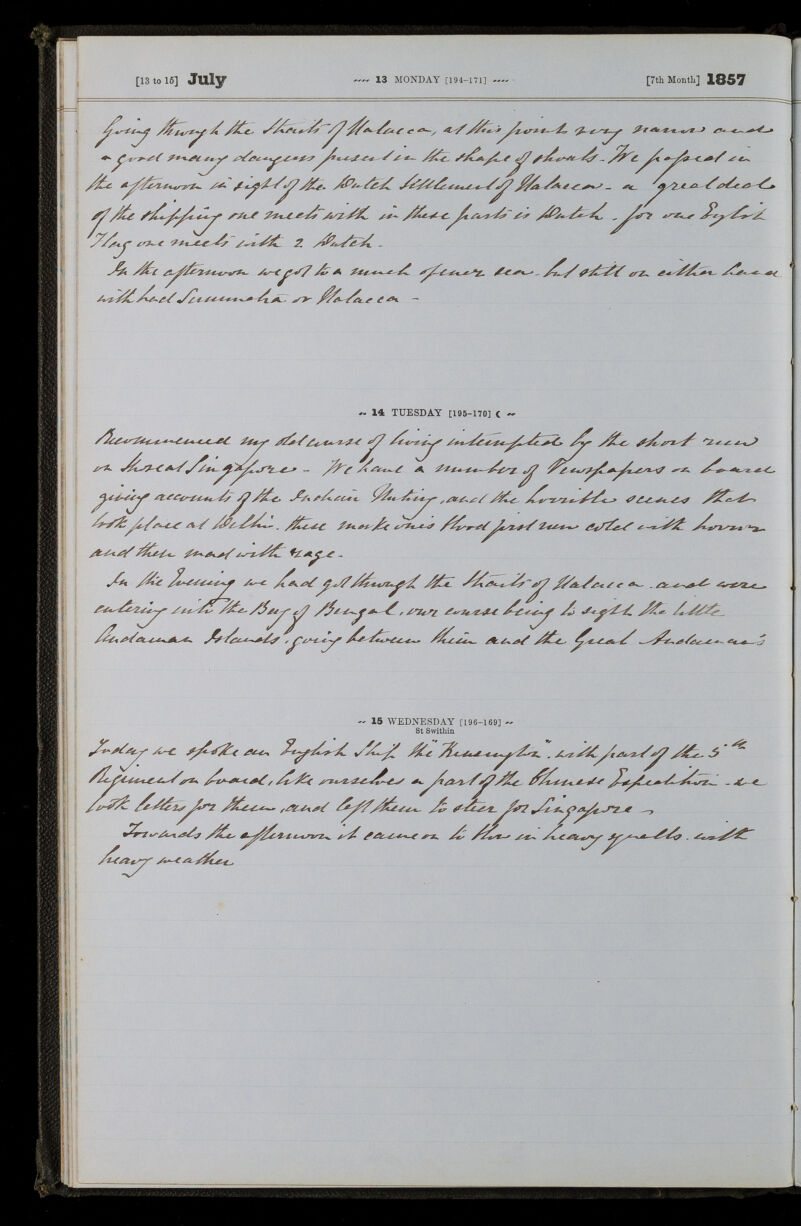 [13 to 15] July ---- 13 MONDAY [194-171] ---- [7th Month] 1857
Going through the Straits of Malacca, at this point very narrow and
a good many dangers present in the shape of shoals - We passed in
the afternoon in sight of the Dutch Settlement of Malacca - a great deal
of the shipping one meets with in these parts is Dutch - for one English
Flag one meets with 2 Dutch -
In the afternoon we got to a much opener sea - but still on either hand
with had Summatra or Malacca -
~ 14 TUESDAY [195-170] ☾ ~
Recommenced my old course of living interrupted by the short run
on at Singapore - We have a number of Newspapers on board
giving accounts of the Indian Mutiny, and the horrible scenes that
took place at Delhi. these make one's blood first run cold with horror
and then mad with rage -
In the Evening we had got through the Straits of Malacca and were
entering into the Bay of Bengal, our course being to sight the little
Andaman Islands, going between them and the Great Andaman's
~ 15 WEDNESDAY [196-169] ~
St Swithin
Today we spoke an English Ship the "Kensington", with part of the 5th
Regiment on board, like ourselves a part of the Chinese Expedition - we
took letters for them, and left them to steer for Singapore -
Towards the afternoon it came on to blow in heavy squalls with
heavy weather